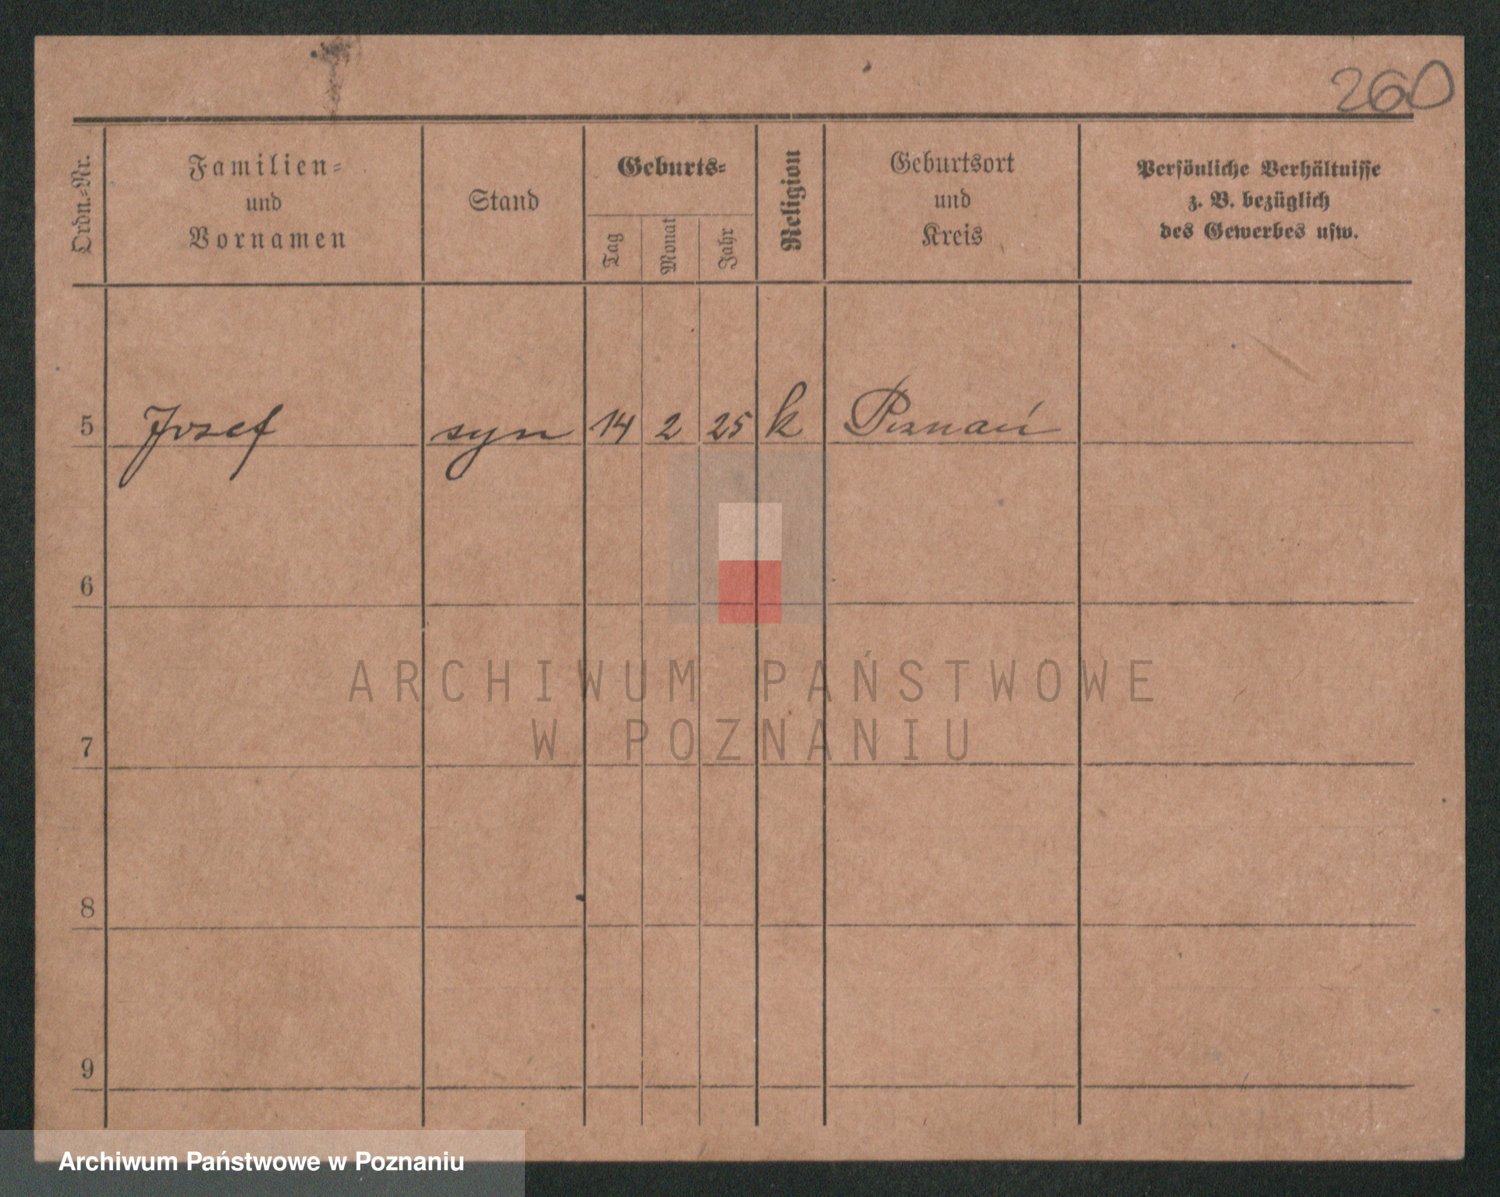 260
Ordn.-Nr.
Familien-
und
Vornamen
Stand
Geburts-
Tag
Monat
Jahr
Religion
Geburtsort
und
Kreis
Persönliche Verhältnisse
z. B. bezüglich
des Gewerbes usw.
5 Józef syn 14 2 25 k Poznań
6
ARCHIWUM PAŃSTWOWE
W POZNANIU
7
8
9
Archiwum Państwowe w Poznaniu